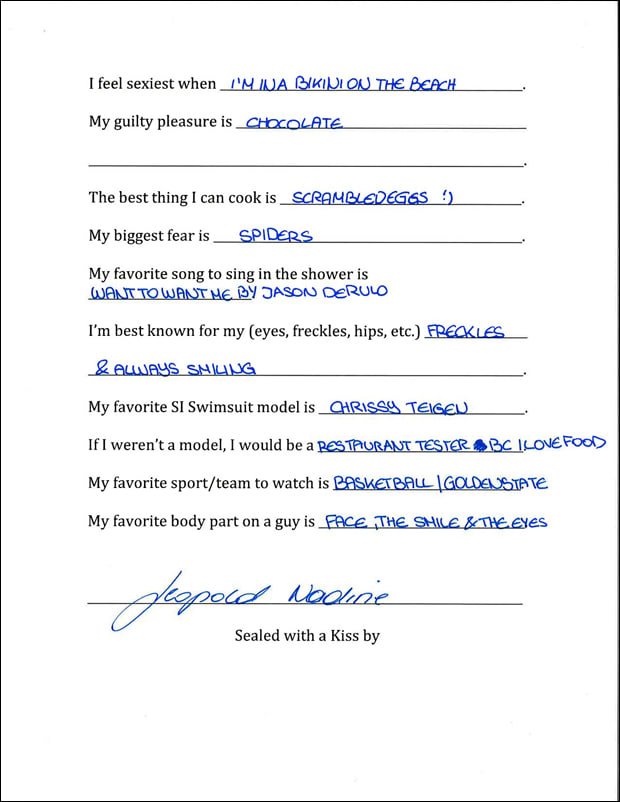 I feel sexiest when I'M IN A BIKINI ON THE BEACH.
My guilty pleasure is CHOCOLATE
.
The best thing I can cook is SCRAMBLED EGGS !).
My biggest fear is SPIDERS.
My favorite song to sing in the shower is
WANT TO WANT ME BY JASON DERULO
I'm best known for my (eyes, freckles, hips, etc.) FRECKLES
& ALWAYS SMILING.
My favorite SI Swimsuit model is CHRISSY TEIGEN.
If I weren't a model, I would be a RESTAURANT TESTER BC I LOVE FOOD
My favorite sport/team to watch is BASKETBALL/GOLDENSTATE
My favorite body part on a guy is FACE, THE SMILE & THE EYES
Leopold Nadine
Sealed with a Kiss by